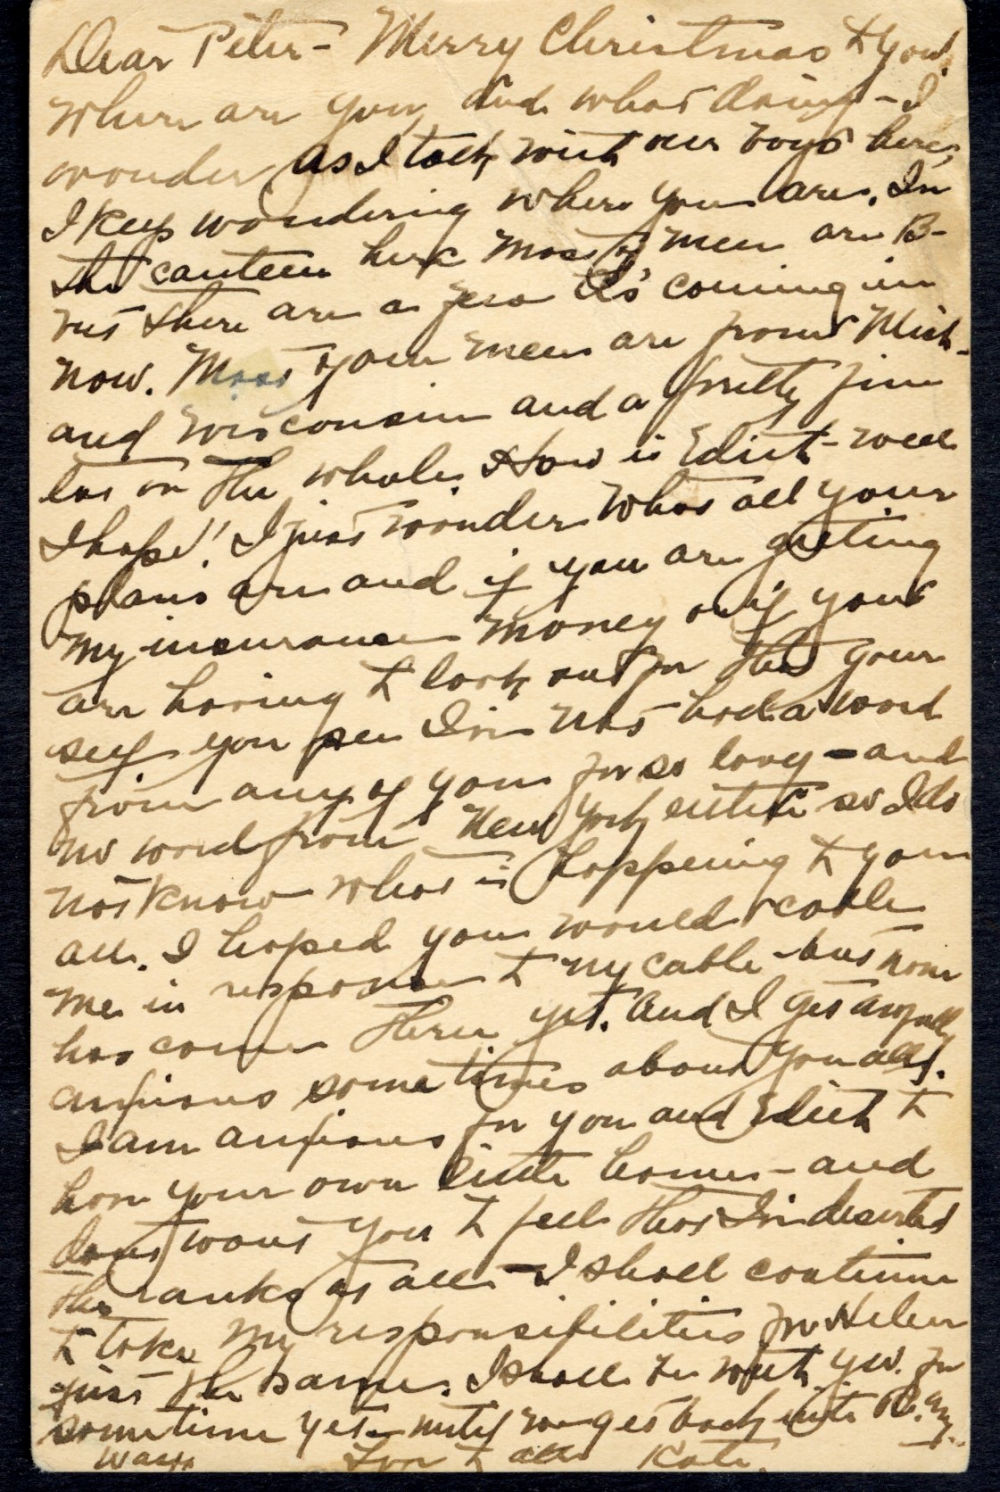 Dear Peter - Merry Christmas to you!
Where are you and what doing - I
wonder As I talk with our boys here,
I keep wondering where you are. In
the canteen here most of men are B-
but there are a few A's coming in
now. Most of our men are from Mich-
and Wisconsin and a pretty fine
lot on the whole. How is Edict - well
I hope! I just wonder what all your
plans are and if you are getting
my insurance money or if you
are having to look out for that your
self you see I've not had a word
from any of you for so long - and
no word from New York either so I do
not know what is happening to you
all. I hoped you would cable
me in response to my cable - but none
has come here yet. And I get awfully
anxious sometimes about you all.
I am anxious for you and Edict to
have your own little home - and
don't want you to feel that I've deserted
the ranks at all - I shall continue
to take my responsibilities for Helen
just the same. I shall be with you for
sometime yet - until we get back
way. Love to all Kate.